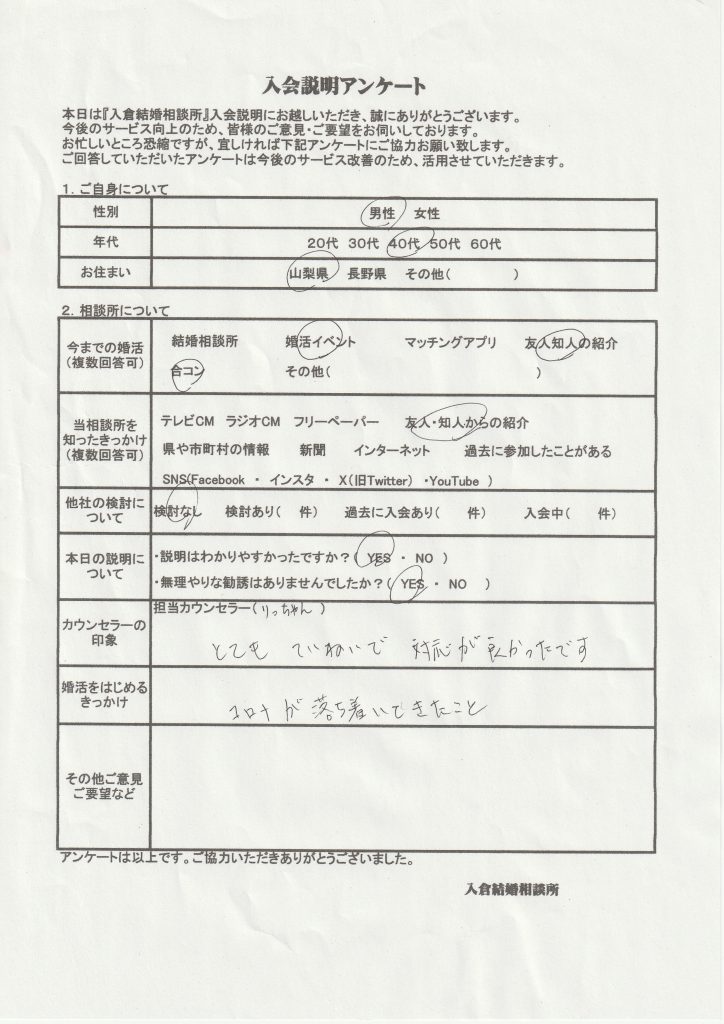 入会説明アンケート
本日は『入倉結婚相談所』入会説明にお越しいただき、誠にありがとうございます。
今後のサービス向上のため、皆様のご意見・ご要望をお伺いしております。
お忙しいところ恐縮ですが、宜しければ下記アンケートにご協力お願い致します。
ご回答していただいたアンケートは今後のサービス改善のため、活用させていただきます。
1. ご自身について
性別 男性 女性
年代 20代 30代 40代 50代 60代
お住まい 山梨県 長野県 その他( )
2. 相談所について
今までの婚活
(複数回答可)
結婚相談所 婚活イベント マッチングアプリ 友人知人の紹介
合コン その他( )
当相談所を
知ったきっかけ
(複数回答可)
テレビCM ラジオCM フリーペーパー 友人・知人からの紹介
県や市町村の情報 新聞 インターネット 過去に参加したことがある
SNS(Facebook ・ インスタ ・ X(旧Twitter) ・YouTube )
他社の検討に
ついて
検討なし 検討あり( 件) 過去に入会あり( 件) 入会中( 件)
本日の説明に
ついて
・説明はわかりやすかったですか?( YES ・ NO )
・無理やりな勧誘はありませんでしたか?( YES ・ NO )
カウンセラーの
印象
担当カウンセラー(りっちゃん)
とても ていねいで 対応が良かったです
婚活をはじめる
きっかけ
コロナが落ち着いてきたこと
その他ご意見
ご要望など
アンケートは以上です。ご協力いただきありがとうございました。
入倉結婚相談所